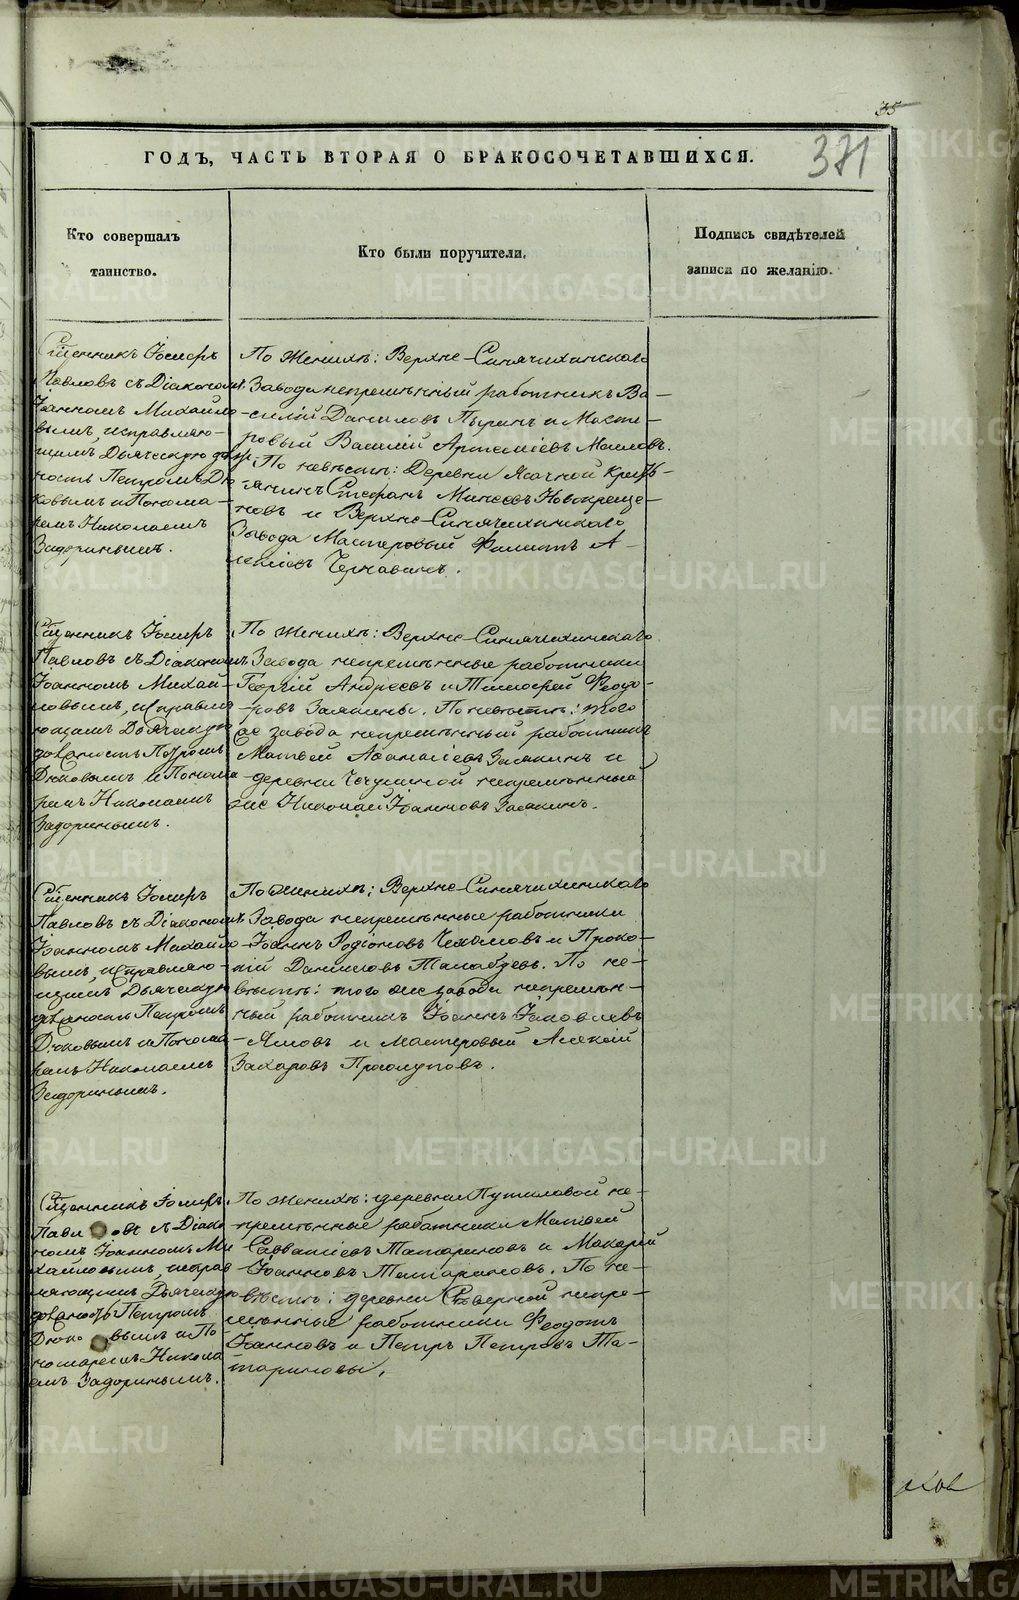 35
371
ГОДЪ, ЧАСТЬ ВТОРАЯ О БРАКОСОЧЕТАВШИХСЯ.
Кто совершалъ
таинство.
Кто были поручители.
Подпись свидѣтелей
записи по желанію.
Сщенникъ Іосифъ
Павловъ съ Діакономъ
Іоанномъ Михайло-
вымъ, исправляю-
щимъ Дьяческую долж-
ность Петромъ Дю-
ковымъ и Понома-
ремъ Николаемъ
Задоринымъ.
По женихѣ: Верхне-Синячихинскаго
Завода непремѣнный работникъ Ва-
силій Даниловъ Пыринъ и Масте-
ровый Василій Артеміевъ Масловъ.
По невѣстѣ: Деревни Ясачной крест-
янинъ Стефанъ Минеевъ Новокреще-
новъ и Верхне-Синячихинскаго
Завода Мастеровый Филиппъ А-
Чернавинъ.
Сщенникъ Іосифъ
Павловъ съ Діакономъ
Іоанномъ Михай-
ловымъ, исправля-
ющимъ Дьяческую
должность Петромъ
Дюковымъ и Понома
ремъ Николаемъ
Задоринымъ.
По женихѣ: Верхне-Синячихинскаго
Завода непремѣнные работники
Георгій Андреевъ и Тимофей Феодо-
ровъ Замякины. По невѣстѣ: того
же завода непремѣнный работникъ
Матвей Афанасіевъ и
деревни непремѣнный
же Николай Іоанновъ
Сщенникъ Іосифъ
Павловъ съ Діакономъ
Іоанномъ Михайло-
вымъ, исправляю-
щимъ Дьяческую
должность Петромъ
Дюковымъ и Понома
ремъ Николаемъ
Задоринымъ.
По женихѣ: Верхне-Синячихинскаго
Завода непремѣнные работники
Іоаннъ Родіоновъ Чехомовъ и Проко-
пій Даниловъ По не-
вѣстѣ: того же завода непремѣн-
ный работникъ Іоаннъ Іаковлевъ
Ямовъ и мастеровый Алексій
Захаровъ Прослуповъ.
Сщенникъ Іосифъ
Павловъ съ Діако
номъ Іоанномъ Ми
хайловымъ, исправ
ляющимъ Дьяческую
должность Петромъ
Дюковымъ и По
номаремъ Никола
емъ Задоринымъ.
По женихѣ: деревни Путиловой не-
премѣнные работники Матвей
Савватіевъ Татариновъ и Макарій
Іоанновъ Татариновъ. По не-
вѣстѣ: деревни Северной непре-
мѣнные работники Феодотъ
Іоанновъ и Петръ Петровъ Та-
тариновы.
METRIKI.GASO-URAL.RU